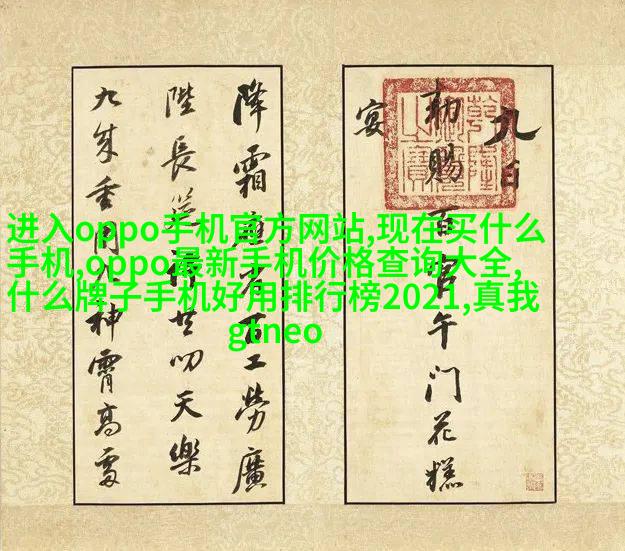 九日
勅賜百官午門花糕
宴
乾隆御覽之寶
降霜百工勞廣
陛長叨天樂
九成重神霄高
进入oppo手机官方网站,现在买什么
手机,oppo最新手机价格查询大全,
什么牌子手机好用排行榜2021,真我
gtneo